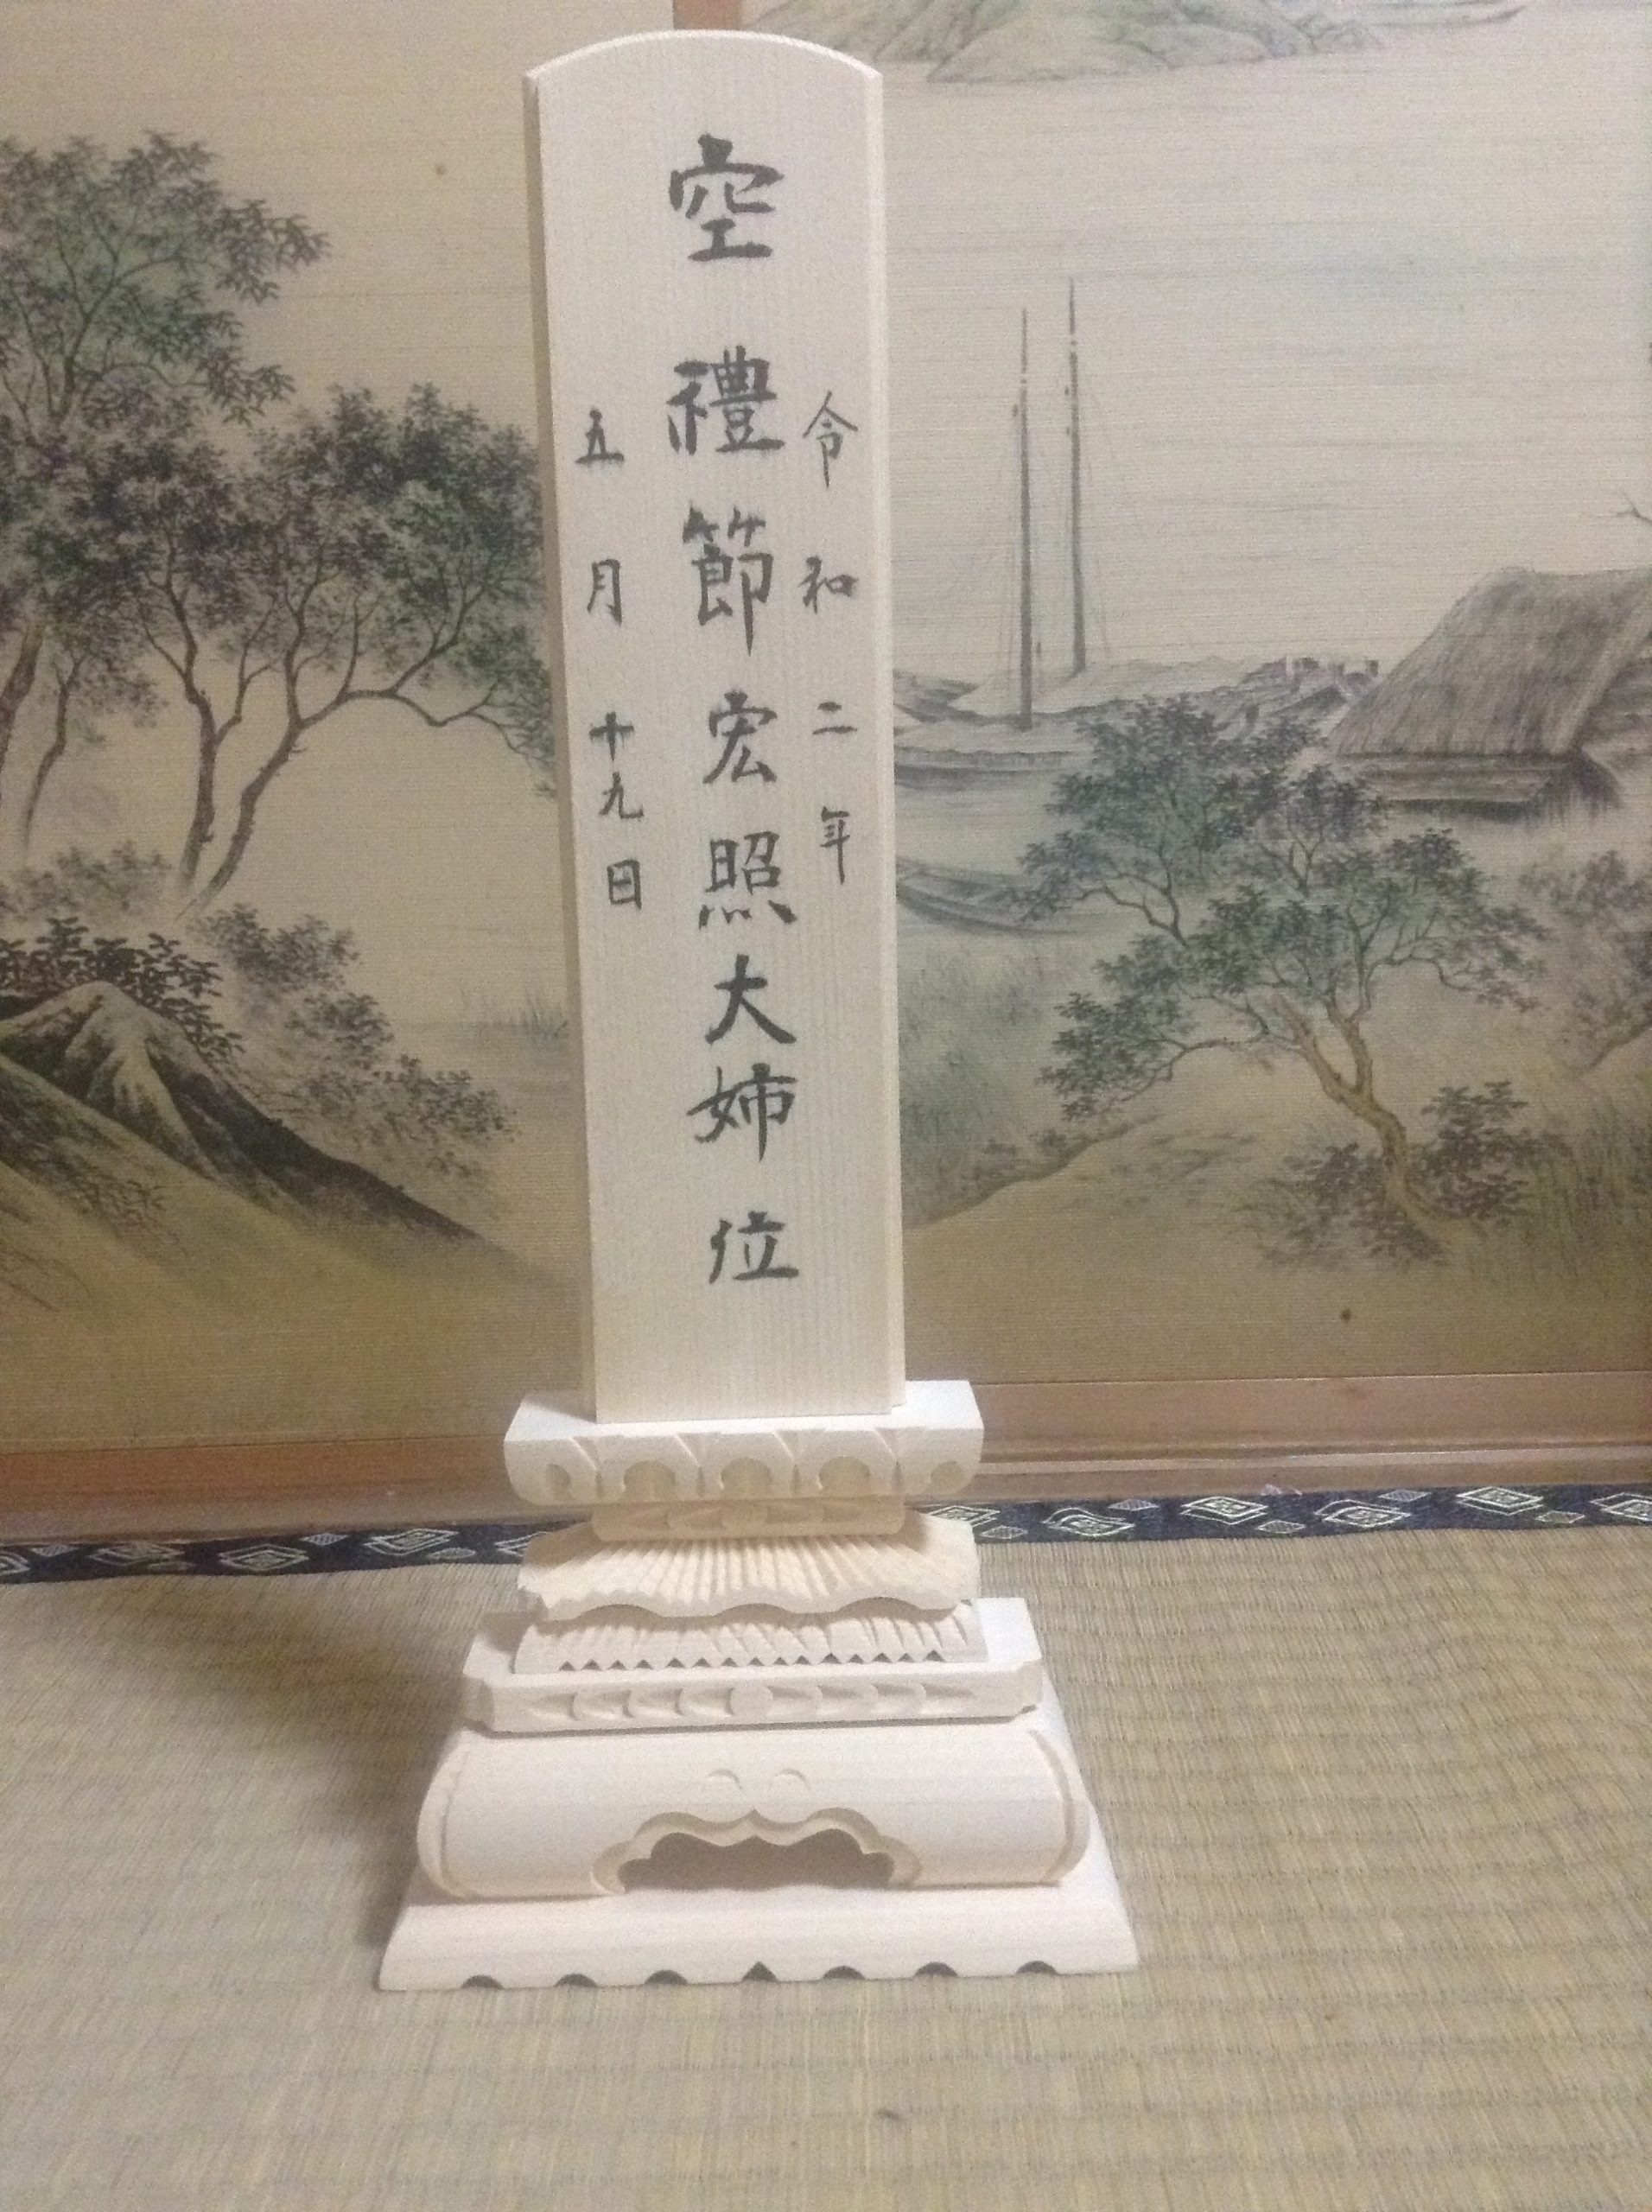 令和二年
空禮節宏照大姉位
五月十九日